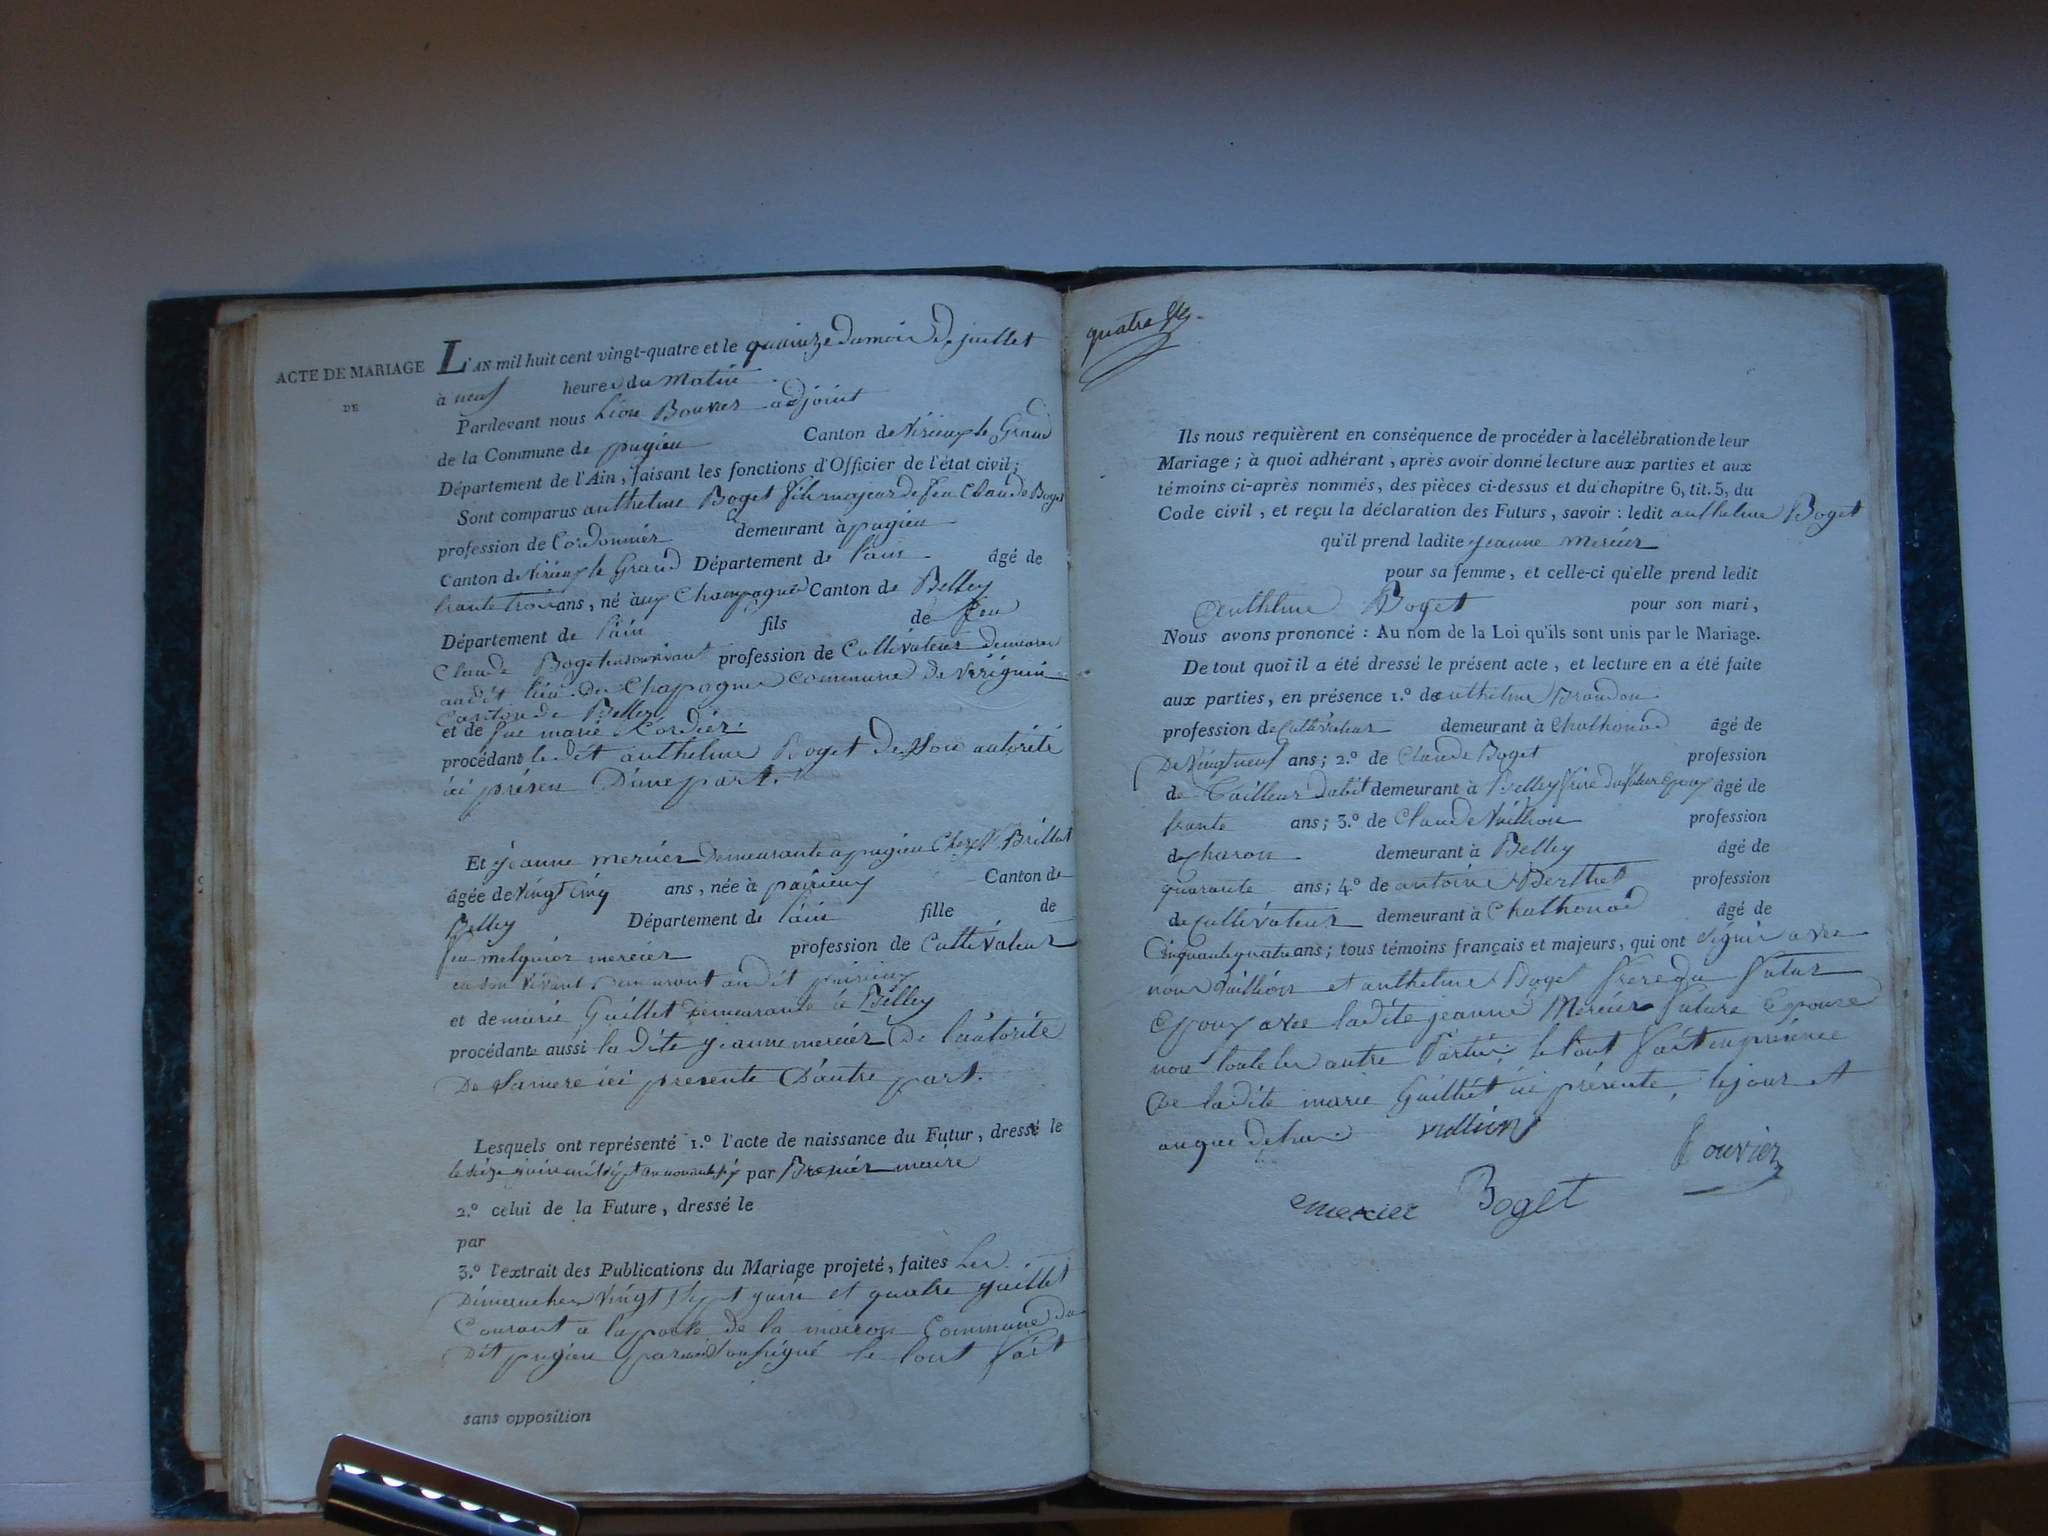 ACTE DE MARIAGE
DE
L'AN mil huit cent vingt-quatre et le quainze du mois de juillet
à neuf heures du Matin
Pardevant nous Léon Bouvier adjoint
de la Commune de pugieu Canton de Virieux le Grand
Département de l'Ain, faisant les fonctions d'Officier de l'état civil;
Sont comparus anthelme Boget fils majeur de feu Claude Boget
profession de Cordonnier demeurant à pugieu
Canton de Virieux le Grand Département de l'ain âgé de
trante trois ans, né aux Champagne Canton de Belley
Département de l'ain fils de feu
Claude Boget en son vivant profession de Cultivateur demeurant
audit lieu de Chapagne Commune de
Canton de Belley
et de feue marie Cordier
procédant le dit anthelme Boget de son autorité
ici présen D'une part.
Et jeanne mercier Demeurante a pugieu Chez Mr Brillat
âgée de vingt Cinq ans, née à pairieux Canton de
Belley Département de l'ain fille de
feu melquior mercier profession de Cultivateur
en son vivant demeurant au dit pairieux
et de marie Guillet Demeurante à Belley
procédante aussi la dite jeanne mercier De l'autorité
De sa mere ici presente D'autre part.
Lesquels ont représenté 1.º l'acte de naissance du Futur, dressé le
le seize par Premier maire
2.º celui de la Future, dressé le
par
3.º l'extrait des Publications du Mariage projeté, faites Les
Dimanches vingt sept juin et quatre juillet
Courant a la porte de la maison Commune du
Dit pugieu par nous soussigné le tout fait
sans opposition
quatre
Ils nous requièrent en conséquence de procéder à la célébration de leur
Mariage; à quoi adhérant, après avoir donné lecture aux parties et aux
témoins ci-après nommés, des pièces ci-dessus et du chapitre 6, tit. 5, du
Code civil, et reçu la déclaration des Futurs, savoir: ledit anthelme Boget
qu'il prend ladite jeanne mercier
pour sa femme, et celle-ci qu'elle prend ledit
Anthelme Boget pour son mari,
Nous avons prononcé: Au nom de la Loi qu'ils sont unis par le Mariage.
De tout quoi il a été dressé le présent acte, et lecture en a été faite
aux parties, en présence 1.º de anthelme Brandon
profession de Cultivateur demeurant à Chathonod âgé de
De vingt neuf ans; 2.º de Claude Boget profession
de Tailleur d'abit demeurant à Belley frere du futur Epoux âgé de
trante ans; 3.º de Claude Vuillion profession
de charon demeurant à Belley âgé de
quarante ans; 4.º de antoine Berthet profession
de Cultivateur demeurant à Chathonod âgé de
Cinquante quatre ans; tous témoins français et majeurs, qui ont signés avec
nous Vuillion et anthelme Boget frere du futur
Epoux avec ladite jeanne Mercier future Epouse
non toute les autre Partie. le tout fait en présence
De ladite marie Guillet ici présente, le jour et
an que dessus. vullion
Bouvier
mercier Boget